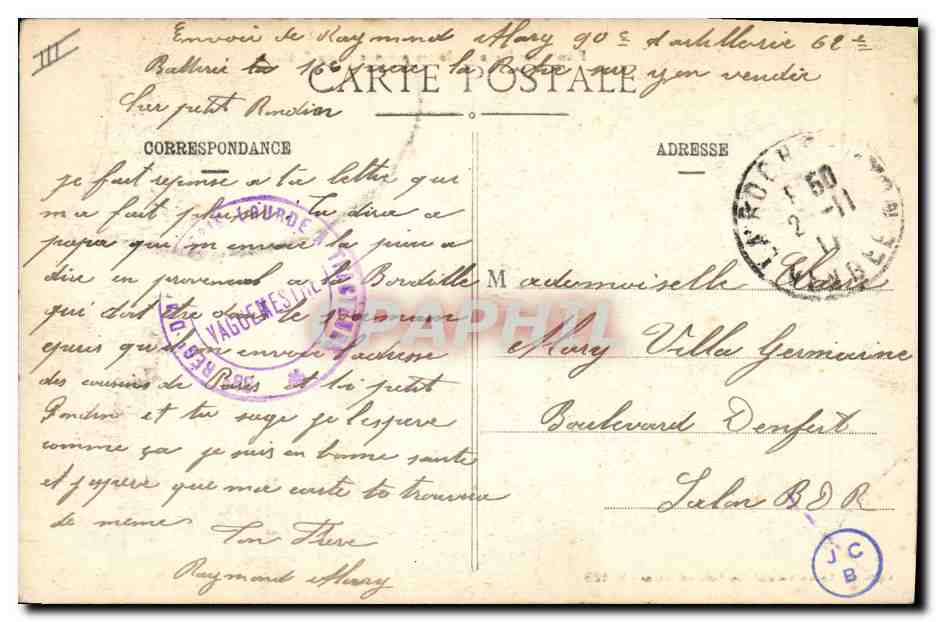 III
Envoi de Raymond Mary 90e d'artillerie 62e
Batterie 16e la Roche sur yon vendée
CARTE POSTALE
Sur petit
CORRESPONDANCE
ADRESSE
je fait reponse a ta lettre qui
m'a fait plaisir tu dira a
papa qui m'envoie la
dire en provencal a la
qui doit etre dans le
puis qu'il m'envoie l'adresse
des cousins de Paris et la petit
et tu sage je l'espere
comme ça je suis en bonne sante
et j'espere que ma carte te trouvera
de meme
Ton Frere
Raymond Mary
LOURDE A
VAGUEMESTRE
RÉGT D'
LA ROCHE
50
2 -11
VENDEE
Mademoiselle Claire
Mary Villa Germaine
Boulevard Denfert
Salon B D R
CPAPHIL
J C
B